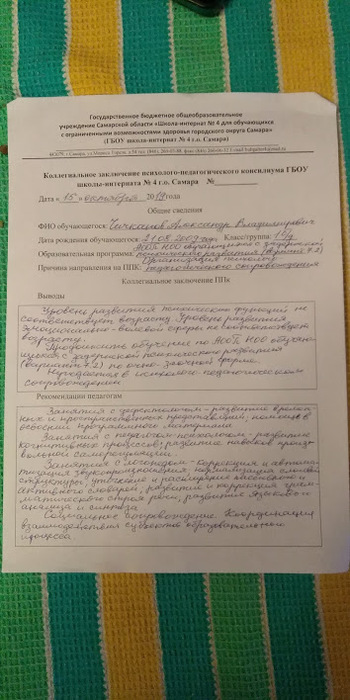 Государственное бюджетное общеобразовательное
учреждение Самарской области «Школа-интернат № 4 для обучающихся
с ограниченными возможностями здоровья городского округа Самара»
(ГБОУ школа-интернат № 4 г.о. Самара)
Коллегиальное заключение психолого-педагогического консилиума ГБОУ
школы-интерната № 4 г.о. Самара №
Дата « 15 » октября 2019 года
Общие сведения
ФИО обучающегося: Александр Владимирович
Дата рождения обучающегося: 21.08.2009 года Класс/группа:
АОП НОО обучающихся с задержкой
Образовательная программа: психического развития (вариант 7.2)
Организация психолого-
Причина направления на ППк: педагогического сопровождения
Коллегиальное заключение ППк
Выводы
Уровень развития психических функций не
соответствует возрасту. Уровень развития
эмоционально-волевой сферы не соответствует
возрасту.
Продолжить обучение по АОП НОО обучаю-
щихся с задержкой психического развития
(вариант 7.2) по очно-заочной форме.
Нуждается в психолого-педагогическом
сопровождении
Рекомендации педагогам
Занятия с дефектологом - развитие времен-
ных и пространственных представлений; помощь в
освоении программного материала
Занятия с педагогом-психологом - развитие
когнитивных процессов; развитие навыков произ-
вольной саморегуляции.
Занятия с логопедом - коррекция и автома-
тизация звукопроизношения, нормализация слоговой
структуры, уточнение и расширение пассивного и
активного словаря, развитие и коррекция грам-
матического строя речи, развитие языкового
анализа и синтеза
Социальное сопровождение. Координация
взаимодействия субъектов образовательного
процесса.